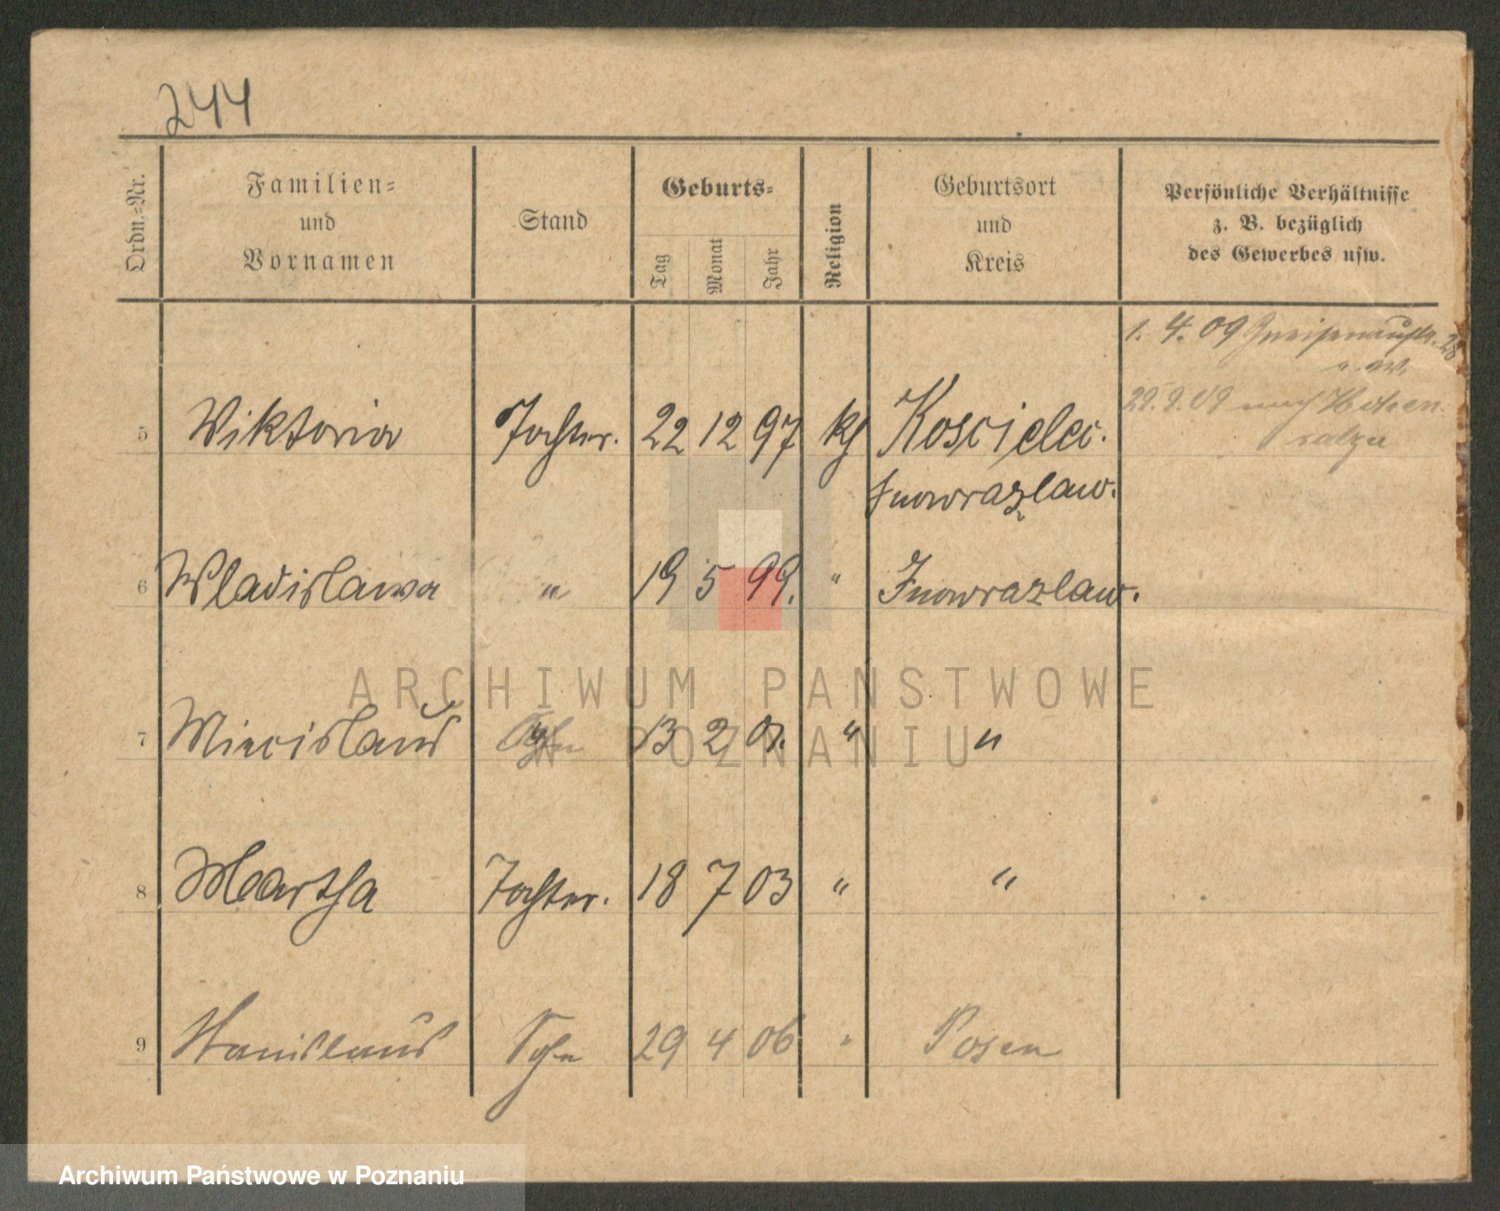 244
Ordn.-Nr.
Familien-
und
Vornamen
Stand
Geburts-
Tag
Monat
Jahr
Religion
Geburtsort
und
Kreis
Persönliche Verhältnisse
z. B. bezüglich
des Gewerbes usw.
1. 4. 09 Gneisenaustr. 28
29. 9. 09 nach Hohen-
salza
5 Wiktoria Tochter. 22 12 97 kf Koscielec.
Inowrazlaw.
6 Wladislawa " 19 5 99. " Inowrazlaw.
7 Miecislaus Sohn 13 2 01. " "
8 Martha Tochter. 18 7 03 " "
9 Stanislaus Sohn 29 4 06 " Posen
ARCHIWUM PANSTWOWE
W POZNANIU
Archiwum Państwowe w Poznaniu